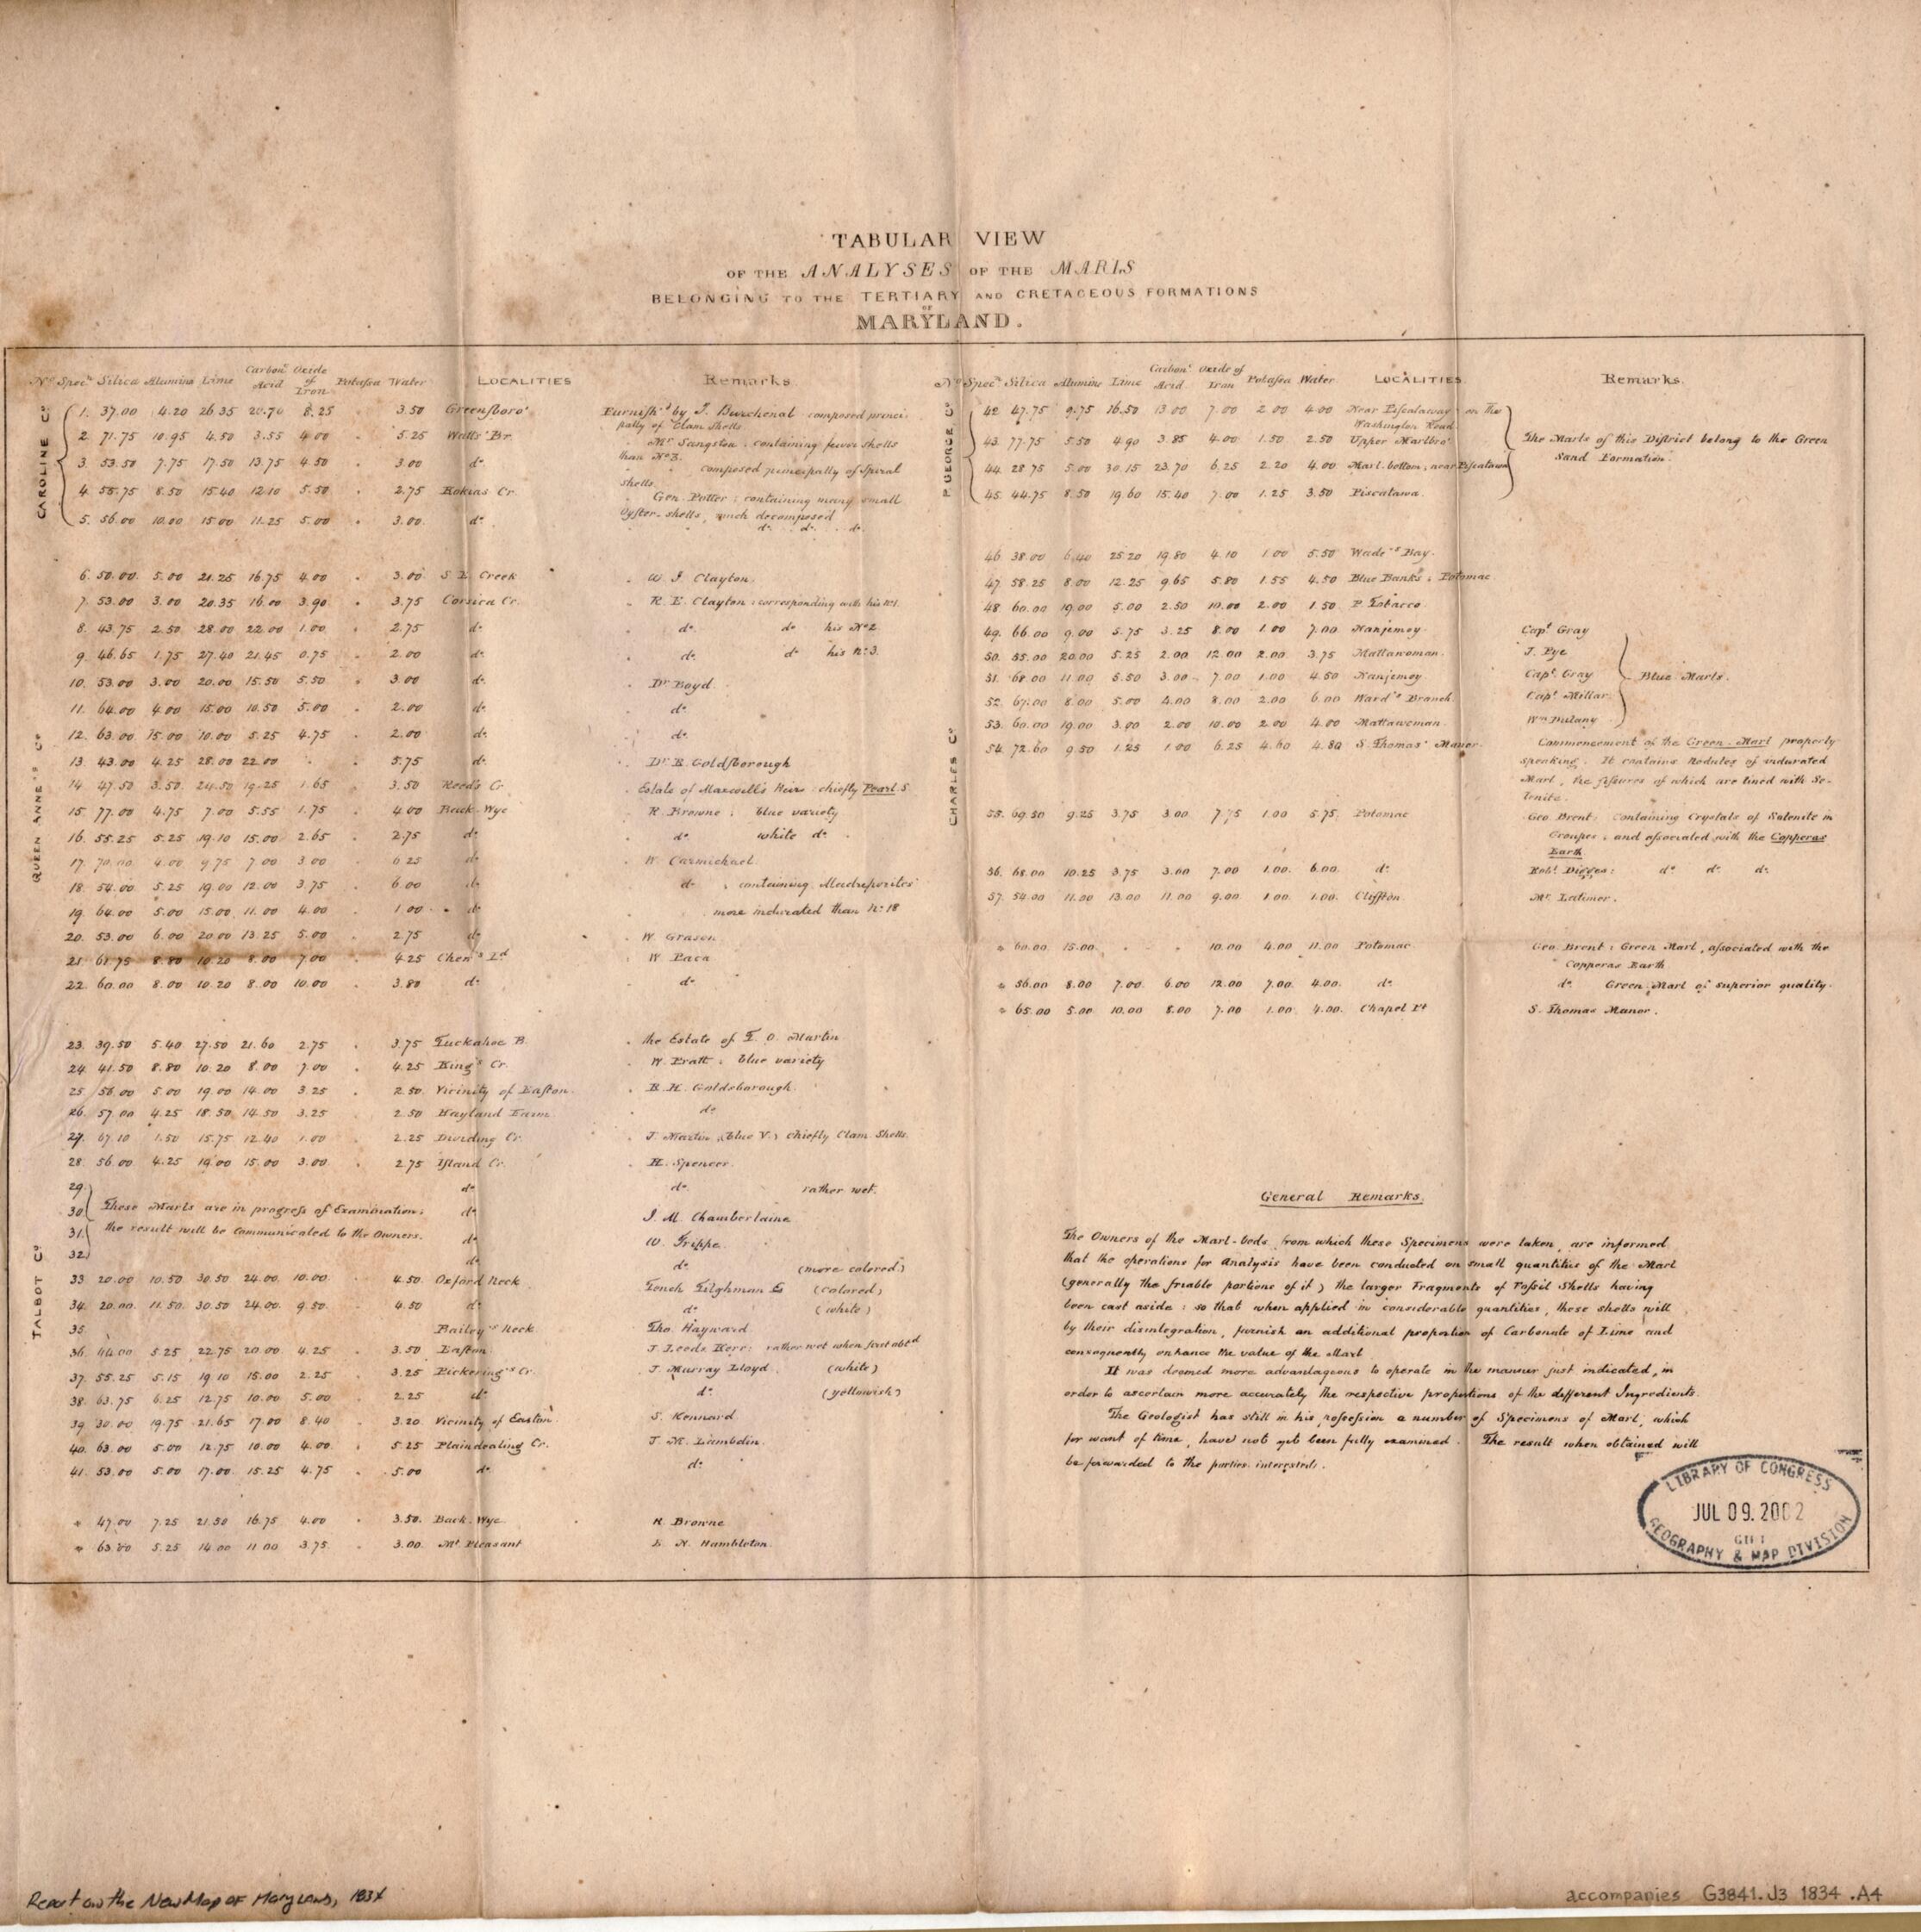 TABULAR VIEW
OF THE ANALYSES OF THE MARLS
BELONGING TO THE TERTIARY AND CRETACEOUS FORMATIONS
OF
MARYLAND.
No Specns Silica Alumina Lime Carbonc Acid Oxide of Iron Potassa Water LOCALITIES Remarks
CAROLINE Co
1. 37.00 4.20 26.35 20.70 8.25 " 3.50 Greensboro' Furnish'd by J. Burchenal composed princi-
pally of Clam shells
2. 71.75 10.95 4.50 3.55 4.00 " 5.25 Watts' Br. " Mr Sangston: containing fewer shells
than No 3.
3. 53.50 7.75 17.50 13.75 4.50 " 3.00 do " " composed principally of Spiral
shells.
4. 55.75 8.50 15.40 12.10 5.50 " 2.75 Hokias Cr. " Gen. Potter: containing many small
Oyster-shells, much decomposed
5. 56.00 10.00 15.00 11.25 5.00 " 3.00. do " " do do do
QUEEN ANNE'S Co
6. 50.00. 5.00 21.25 16.75 4.00 " 3.00 S. E. Creek " W. J. Clayton.
7. 53.00 3.00 20.35 16.00 3.90 " 3.75 Corsica Cr. " R. E. Clayton: corresponding with his No 1.
8. 43.75 2.50 28.00 22.00 1.00 " 2.75 do " do do his No 2
9. 46.65 1.75 27.40 21.45 0.75 " 2.00 do " do do his No 3.
10. 53.00 3.00 20.00 15.50 5.50 " 3.00 do " Dr Boyd.
11. 64.00 4.00 15.00 10.50 5.00 " 2.00 do " do
12. 63.00 15.00 10.00 5.25 4.75 " 2.00 do " do
13. 43.00 4.25 28.00 22.00 " " 5.75 do " Dr R. Goldsborough
14. 47.50 3.50 24.50 19.25 1.65 " 3.50 Reed's Cr. " Estate of Maxwell's Heirs: chiefly Pearl S
15. 77.00 4.75 7.00 5.55 1.75 " 4.00 Back Wye " R. Browne: blue variety
16. 55.25 5.25 19.10 15.00 2.65 " 2.75 do " do white do
17. 70.00 4.00 9.75 7.00 3.00 " 6.25 do " W. Carmichael
18. 54.00 5.25 19.00 12.00 3.75 " 6.00 do do: containing Madreporites
19. 64.00 5.00 15.00 11.00 4.00 " 1.00 do " more indurated than No 18
20. 53.00 6.00 20.00 13.25 5.00 " 2.75 do " W. Grason
21. 61.75 8.80 10.20 8.00 7.00 " 4.25 Chew's Id " W. Paca
22. 60.00 8.00 10.20 8.00 10.00 " 3.80 do " do
TALBOT Co
23. 39.50 5.40 27.50 21.60 2.75 " 3.75 Tuckahoe B. " the Estate of T. O. Martin
24. 41.50 8.80 10.20 8.00 7.00 " 4.25 King's Cr. " W. Pratt: blue variety
25. 56.00 5.00 19.00 14.00 3.25 " 2.50 Vicinity of Easton. " R. H. Goldsborough
26. 57.00 4.25 18.50 14.50 3.25 " 2.50 Hayland Farm " do
27. 67.10 1.50 15.75 12.40 1.00 " 2.25 Dividing Cr. " J. Martin, (blue V.) chiefly Clam Shells.
28. 56.00 4.25 19.00 15.00 3.00 " 2.75 Island Cr. " H. Spencer
29. do " do rather wet.
30. These Marls are in progress of Examination; do J. M. Chamberlaine
31. the result will be Communicated to the Owners. do W. Trippe
32. do do (more colored)
33 20.00 10.50 30.50 24.00 10.00 4.50 Oxford Neck Tench Tilghman (colored)
34. 20.00 11.50 30.50 24.00 9.50 4.50 do do (white)
35. Bailey's Neck Tho. Hayward
36. 44.00 5.25 22.75 20.00 4.25 " 3.50 Easton J. Leeds Kerr: rather wet when first obtd
37. 55.25 5.15 19.10 15.00 2.25 " 3.25 Pickering's Cr. J. Murray Lloyd. (white)
38. 63.75 6.25 12.75 10.00 5.00 " 2.25 do do (yellowish)
39 30.00 19.75 21.65 17.00 8.40 " 3.20 Vicinity of Easton. S. Kennard
40. 63.00 5.00 12.75 10.00 4.00 " 5.25 Plaindealing Cr. J. M. Lambdin.
41. 53.00 5.00 17.00 15.25 4.75 " 5.00 do do
* 47.00 7.25 21.50 16.75 4.00 " 3.50. Back Wye R. Browne
* 63.00 5.25 14.00 11.00 3.75 " 3.00 Mt Pleasant E. N. Hambleton.
No Specns Silica Alumine Lime Carbonc Acid. Oxide of Iron Potassa Water LOCALITIES. Remarks.
P. GEORGE Co
42. 47.75 9.75 16.50 13.00 7.00 2.00 4.00 Near Piscataway on the
Washington Road
43. 77.75 5.50 4.90 3.85 4.00 1.50 2.50 Upper Marlbro'
44. 28.75 5.00 30.15 23.70 6.25 2.20 4.00 Marl-bottom; near Piscatawa
45. 44.75 8.50 19.60 15.40 7.00 1.25 3.50 Piscatawa.
The Marls of this District belong to the Green
Sand Formation.
CHARLES Co
46. 38.00 6.40 25.20 19.80 4.10 1.00 5.50 Wade's Bay.
47. 58.25 8.00 12.25 9.65 5.80 1.55 4.50 Blue Banks; Potomac
48 60.00 19.00 5.00 2.50 10.00 2.00 1.50 P. Tobacco
49. 66.00 9.00 5.75 3.25 8.00 1.00 7.00 Nanjemoy. Capt Gray
50. 55.00 20.00 5.25 2.00 12.00 2.00 3.75 Mattawoman. J. Pye
51. 68.00 11.00 5.50 3.00 7.00 1.00 4.50 Nanjemoy Capt Gray Blue Marls.
52. 67.00 8.00 5.00 4.00 8.00 2.00 6.00 Ward's Branch Capt Millar
53. 60.00 19.00 3.00 2.00 10.00 2.00 4.00 Mattawoman. Wm Dulany
54. 72.60 9.50 1.25 1.00 6.25 4.60 4.80 S. Thomas' Manor. Commencement of the Green-Marl property
speaking. It contains Nodules of indurated
Marl, the fissures of which are lined with Se-
lenite.
55. 69.50 9.25 3.75 3.00 7.75 1.00 5.75. Potomac Geo. Brent: Containing Crystals of Selenite in
Groupes; and associated with the Copperas
Earth
56. 68.00 10.25 3.75 3.00 7.00 1.00. 6.00. do Robt Digges: do do do
57. 54.00 11.00 13.00 11.00 9.00 1.00. 1.00. Cliffton. Mr Latimer.
* 60.00. 15.00. " " 10.00 4.00 11.00 Potomac Geo. Brent: Green Marl, associated with the
Copperas Earth
* 56.00 8.00 7.00. 6.00 12.00 7.00. 4.00. do do Green Marl of superior quality.
* 65.00 5.00 10.00 8.00 7.00 1.00. 4.00. Chapel Pt S. Thomas Manor.
General Remarks.
The Owners of the Marl-beds, from which these Specimens were taken, are informed
that the operations for Analysis have been conducted on small quantities of the Marl
(generally the friable portions of it) the larger Fragments of Fossil Shells having
been cast aside: so that when applied in considerable quantities, these shells will
by their disintegration, furnish an additional proportion of Carbonate of Lime and
consequently enhance the value of the Marl
It was deemed more advantageous to operate in the manner just indicated, in
order to ascertain more accurately the respective proportions of the different Ingredients.
The Geologist has still in his possession a number of Specimens of Marl, which
for want of time, have not yet been fully examined. The result when obtained will
be forwarded to the parties interested.
LIBRARY OF CONGRESS
JUL 09. 2002
GIFT
GEOGRAPHY & MAP DIVISION
Report on the New Map of Maryland, 1834
accompanies G3841.J3 1834 .A4